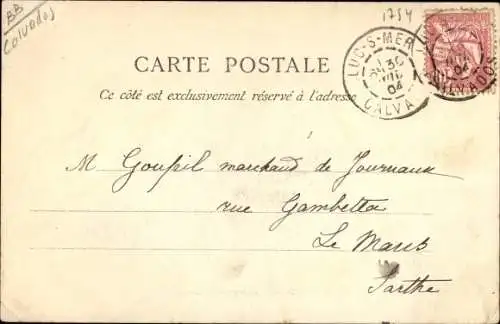 BB
Calvados
1754
LUC-S-MER
30
JUIL
04
CALVA
04
CALVADOS
CARTE POSTALE
Ce côté est exclusivement réservé à l'adresse
M Goupil marchand de Journaux
rue Gambetta
Le Mans
Sarthe